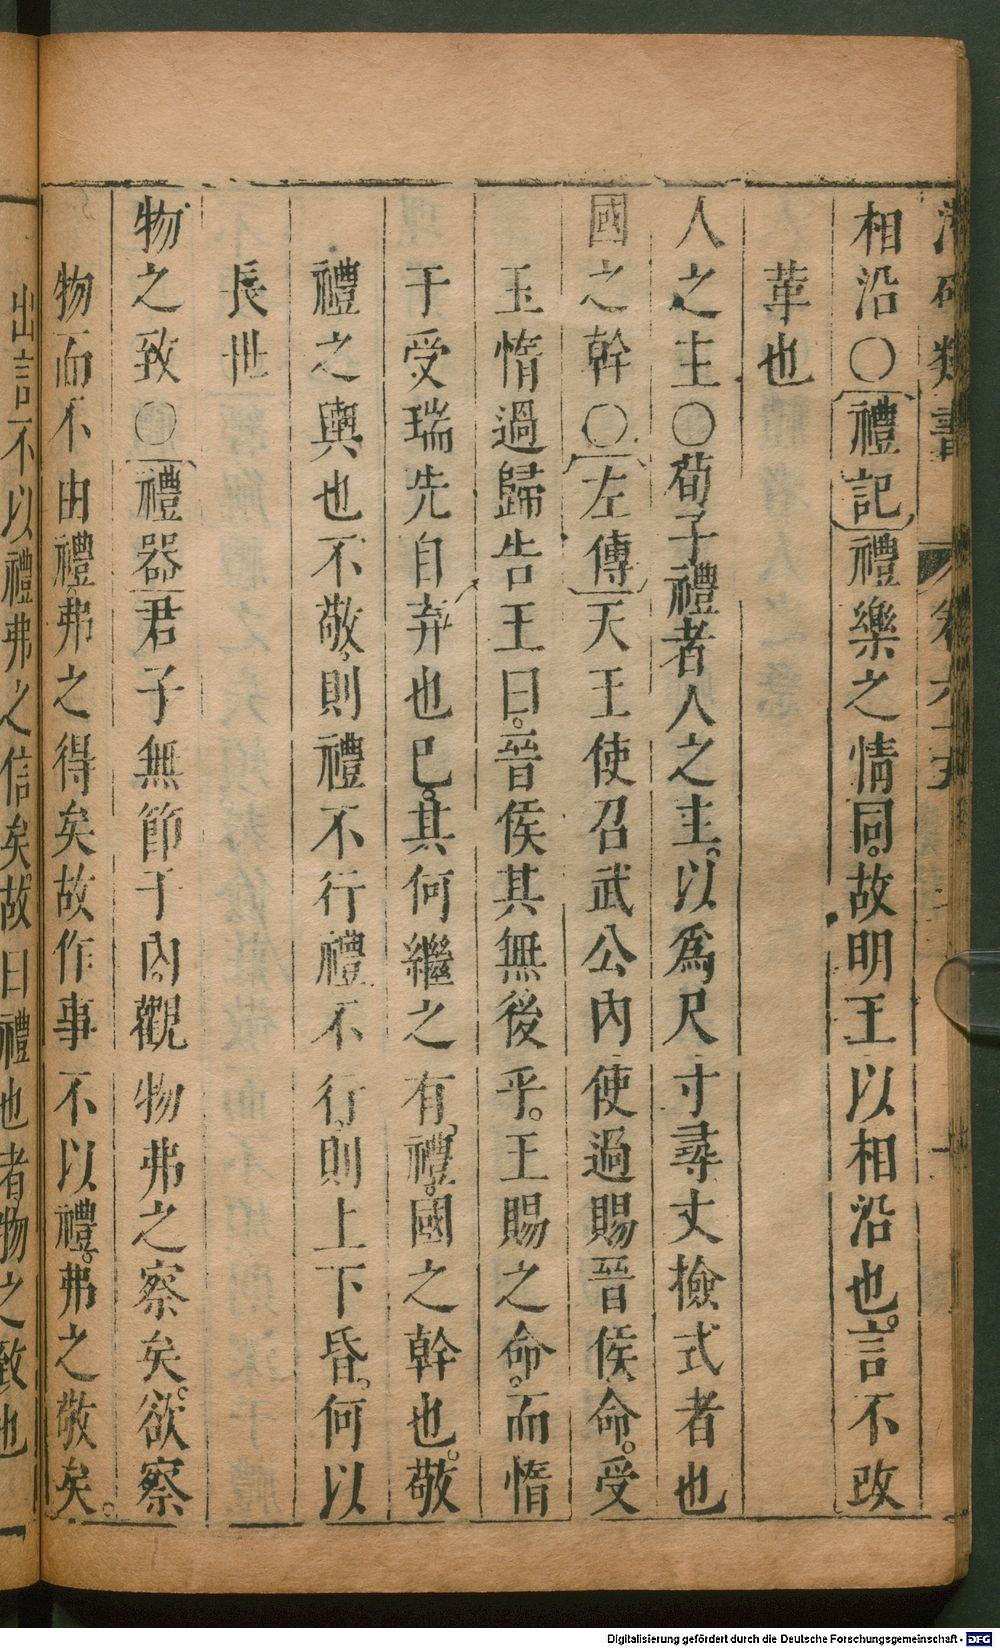 相沿〇禮記禮樂之情同故明王以相沿也言不改
革也
人之主〇荀子禮者人之主以爲尺寸尋丈撿式者也
國之幹〇左傳天王使召武公內使過賜晉侯命受
玉惰過歸告王曰晉侯其無後乎王賜之命而惰
于受瑞先自弃也已其何繼之有禮國之幹也敬
禮之輿也不敬則禮不行禮不行則上下昏何以
長世
物之致〇禮器君子無節于內觀物弗之察矣欲察
物而不由禮弗之得矣故作事不以禮弗之敬矣
出言不以禮弗之信矣故曰禮也者物之致也
Digitalisierung gefördert durch die Deutsche Forschungsgemeinschaft - DFG